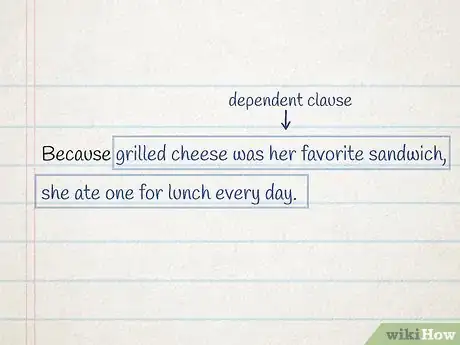 dependent clause
Because grilled cheese was her favorite sandwich,
she ate one for lunch every day.
wikiHow